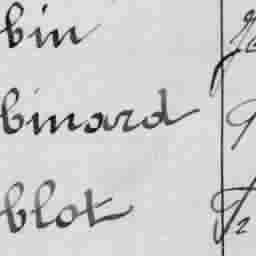 bin
binard
blot